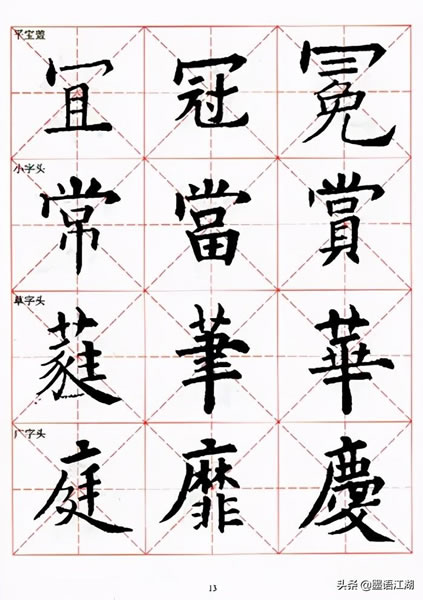 平宝盖
冝 冠 冕
小字头
常 當 賞
草字头
蕤 茟 華
广字头
庭 靡 慶
13
头条 @墨语江湖